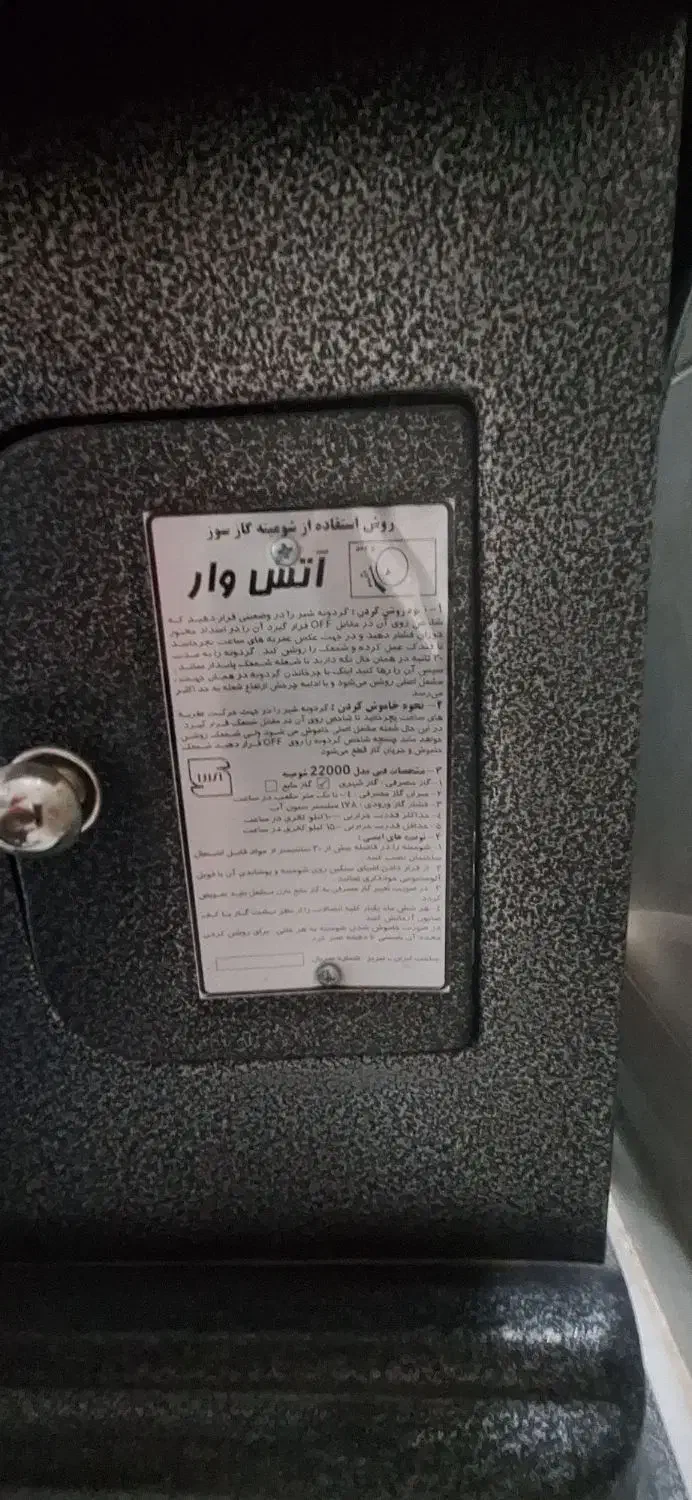 روش استفاده از شومینه گاز سوز
آتش وار
روشن کردن : گردونه شیر را در وضعیتی قرار دهید که
روی آن در مقابل OFF قرار گیرد آن را در امتداد محور
فشار دهید و در جهت عکس عقربه های ساعت بچرخانید
عمل کرده و شمعک را روشن کند. گردونه را به مدت
۳۰ ثانیه در همان حال نگه دارید تا شعله شمعک پایدار بماند.
سپس آن را رها کنید اینک با چرخاندن گردونه در همان جهت،
مشعل اصلی روشن می‌شود و با ادامه چرخش ارتفاع شعله به حد اکثر
می‌رسد
۲- نحوه خاموش کردن : گردونه شیر را در جهت حرکت عقربه
های ساعت بچرخانید تا شاخص روی آن در مقابل شمعک قرار گیرد
در این حال شعله مشعل اصلی خاموش می شود ولی شمعک روشن
خواهد ماند چنانچه شاخص گردونه را روی OFF قرار دهید شمعک
خاموش و جریان گاز قطع می‌شود
۳- مشخصات فنی مدل 22000 شومینه
۱- گاز مصرفی : گاز شهری گاز مایع
۲- میزان گاز مصرفی : متر مکعب در ساعت
۳- فشار گاز ورودی : ۱۷۸ میلیمتر ستون آب
۴- حداکثر قدرت حرارتی کیلو کالری در ساعت
۵- حداقل قدرت حرارتی کیلو کالری در ساعت
۴- توصیه های ایمنی :
۱. شومینه را در فاصله بیش از ۳۰ سانتیمتر از مواد قابل اشتعال
ساختمان نصب کنید
۲. از قرار دادن اشیای سنگین روی شومینه و پوشاندن آن با فویل
آلومینیومی خودداری نمائید
۳. در صورت تغییر گاز مصرفی به گاز مایع نازل مشعل باید تعویض
گردد
۴. هر شش ماه یکبار کلیه اتصالات را از نظر نشت گاز با کف
صابون آزمایش کنید
در صورت خاموش شدن شومینه به هر علتی، برای روشن کردن
مجدد آن بایستی دقیقه صبر کرد
ساخت ایران - تبریز شماره سریال